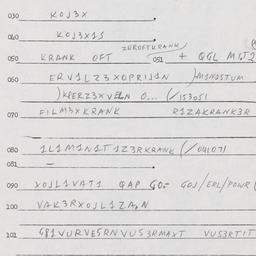 030 KOJ3X
040 KOJ3X1S
ZEROFTKRANK
050 KRANK OFT 051 + QGL
060 ERV1LZ3XOPRIJ1N
)KPERZ3XVELN 0... (/153051
070 FILM3XKRANK R1ZAKRANK3R
080 1L1M1N1T1Z3RKRANK (/041071
081 -
090 XOJL1VAT1 GAP GO= GOJ/ERL/POWR
100 VAK3RXOJL1ZA,N
101 G81VURVE5RNVUS3RMAXT VUS3RTIT